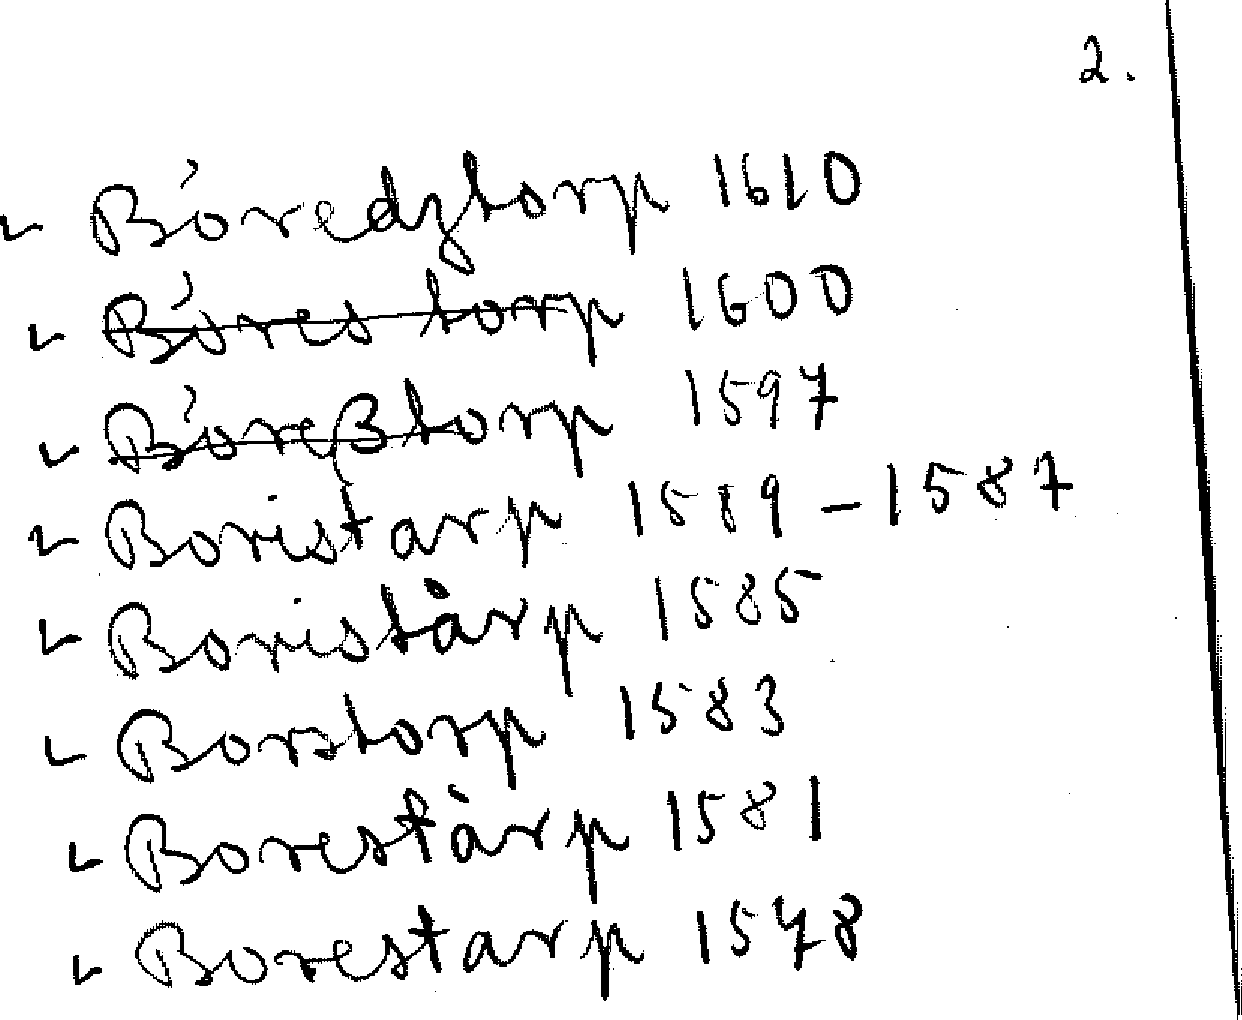 2.
Bóredztorp 1610
Bóres torp 1600
Bóreßtorp 1597
Boristarp 1589 - 1587
Boristårp 1585
Borstorp 1583
Borestårp 1581
Borestarp 1578